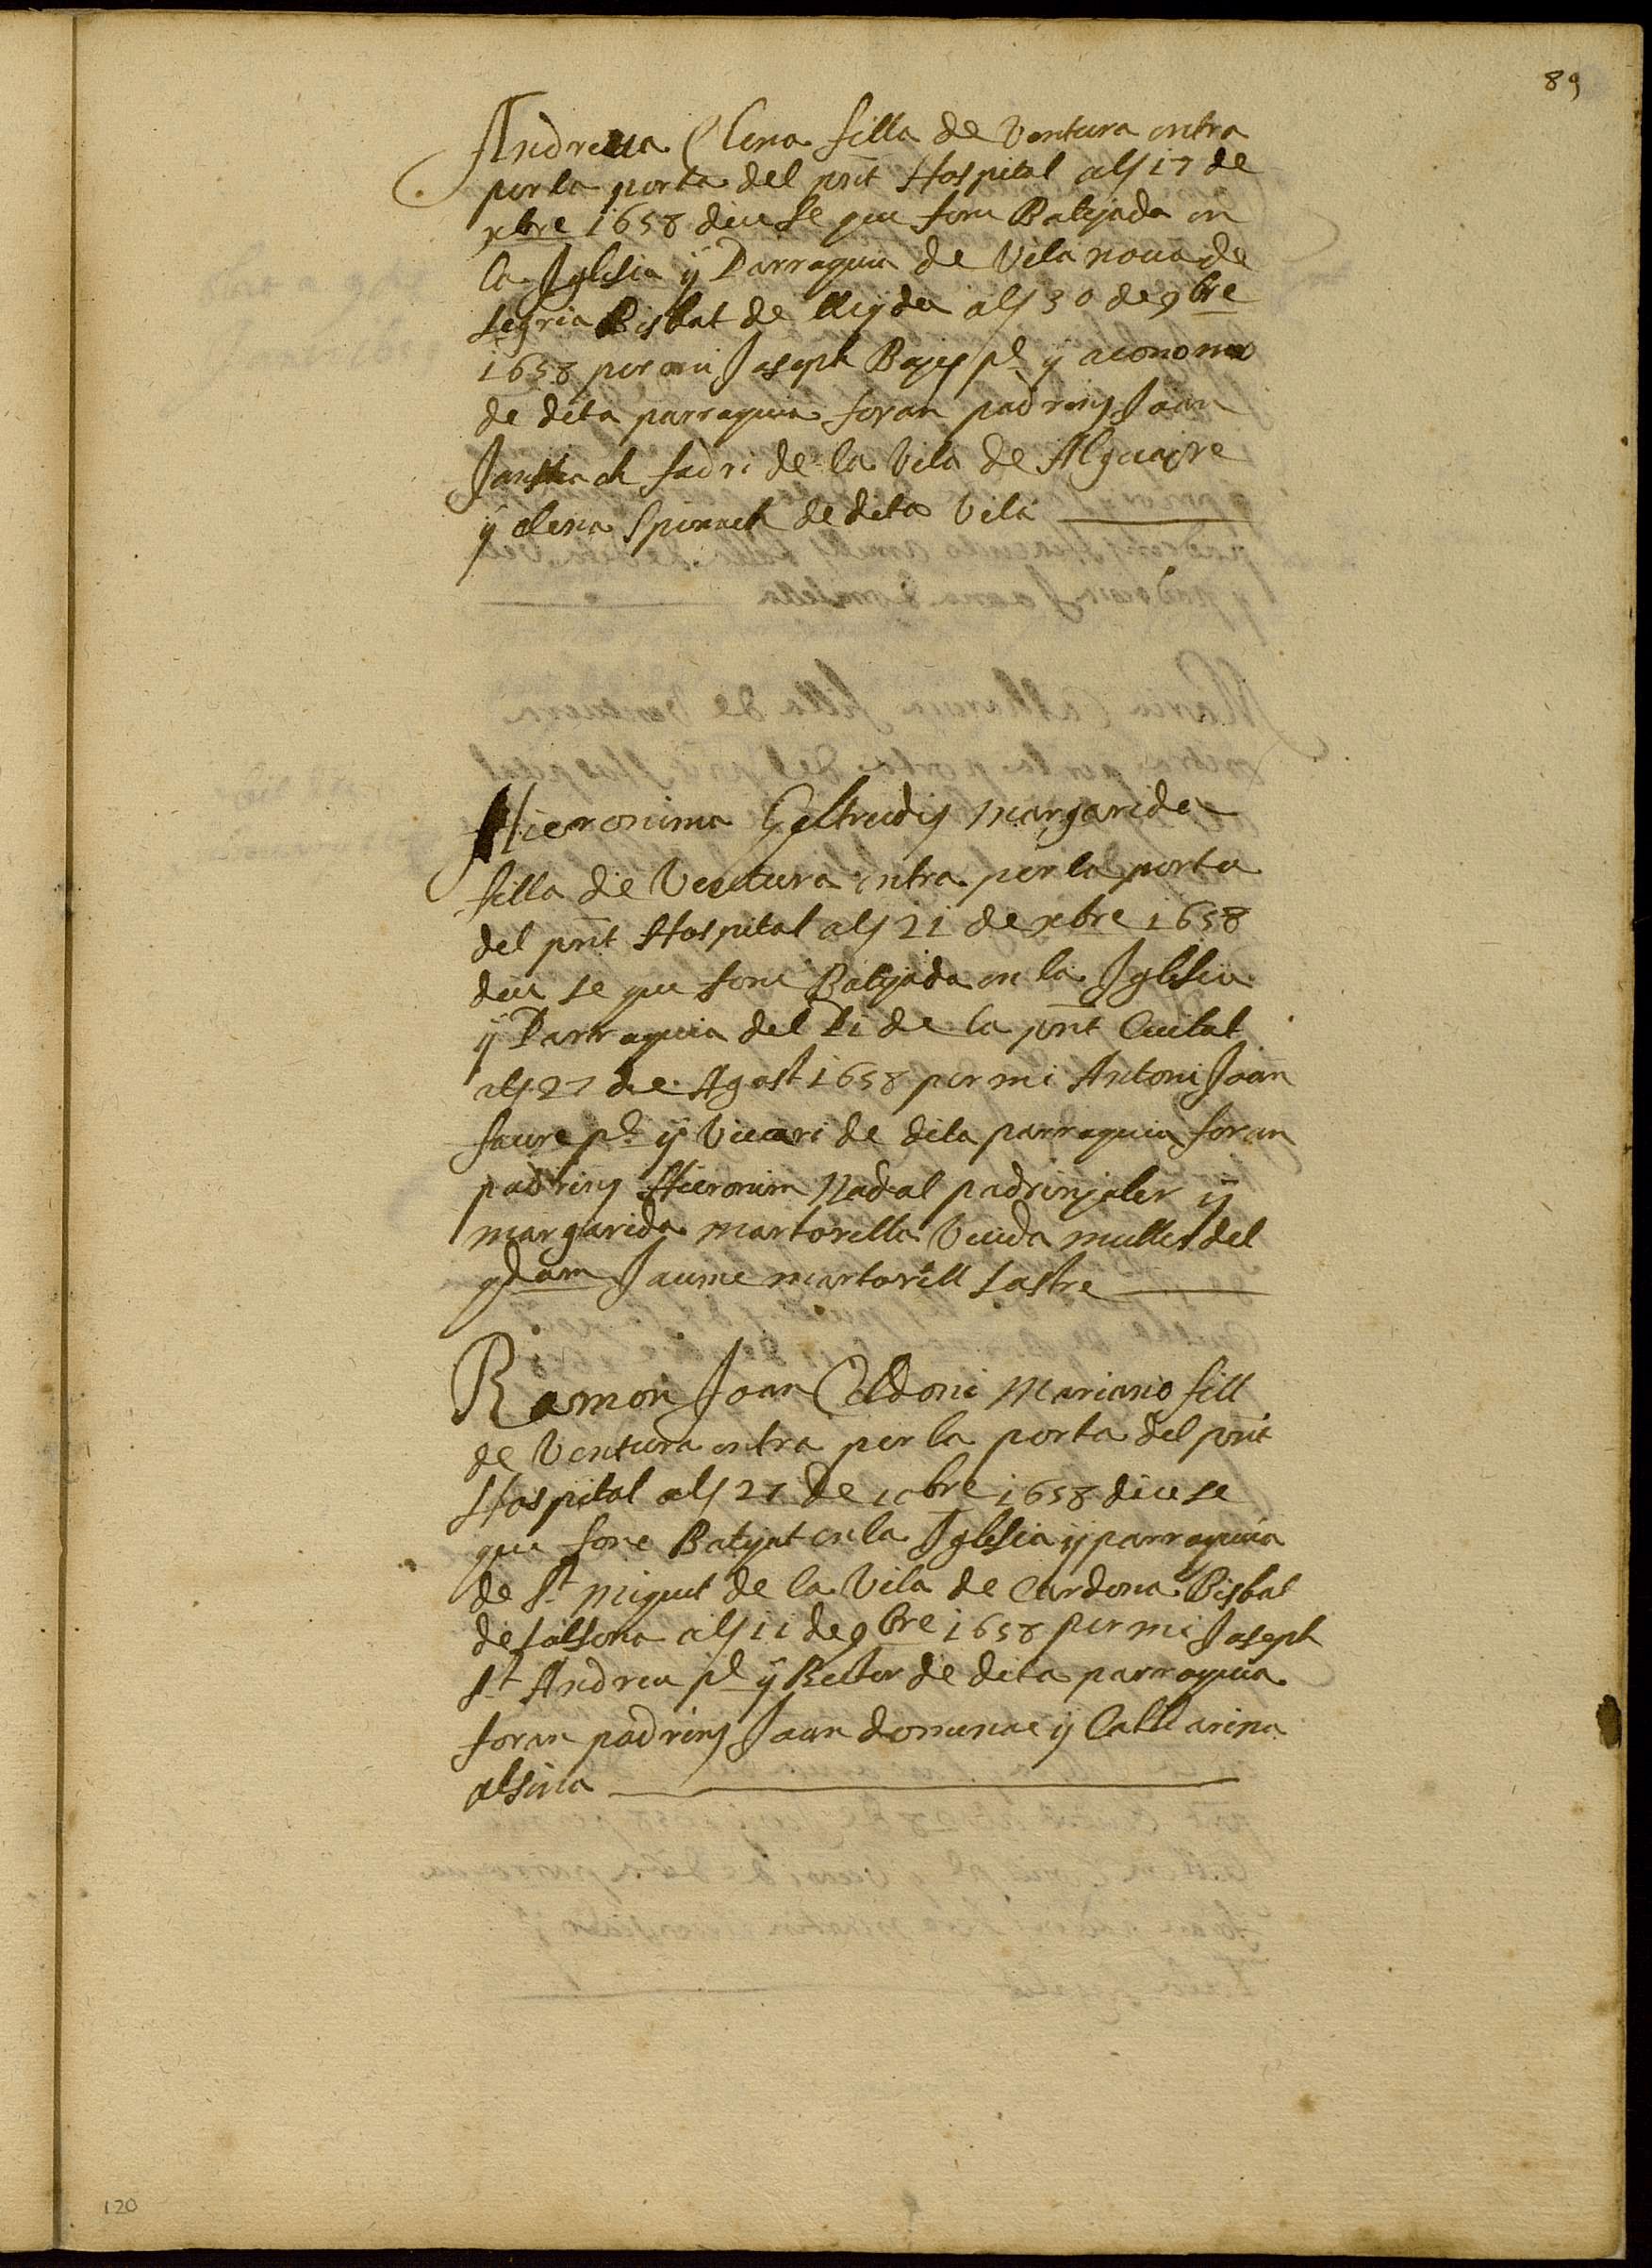 89
Andreua Elena filla de Ventura entra
per la porta del pnt Hospital als 17 de
xbre 1658 diu se que fonc Batejada en
la Iglesia ÿ Parraquia de Vilanova de
Segria Bisbat de lleyda als 30 de 9bre
1658 per mi Joseph pe ÿ aconomo
de dita parraquia foran padrins Joan
fadri de la Vila de Alguayre
ÿ elena Spinach de dita Vila
Hieronima Geltrudis Margarida
filla de Ventura entra per la porta
del pnt Hospital als 21 de xbre 1658
diu se que fonc Batejada en la Iglesia
ÿ Parraquia del Pi de la pnt Ciutat
als 27 de Agost 1658 per mi Antoni Joan
faure pe ÿ Vicari de dita parraquia foran
padrins Hieronim Nadal ÿ
margarida martorella Viuda muller del
qdam Jaume martorell Sastre
Ramon Joan Celdoni Mariano fill
de Ventura entra per la porta del pnt
Hospital als 27 de xbre 1658 diu se
que fonc Batejat en la Iglesia ÿ parraquia
de St Miquel de la Vila de Cardona Bisbat
de Solsona als 11 de 9bre 1658 per mi Joseph
St Andreu pe ÿ Rector de dita parraquia
foran padrins Joan domenac ÿ Catharina
alsina
120